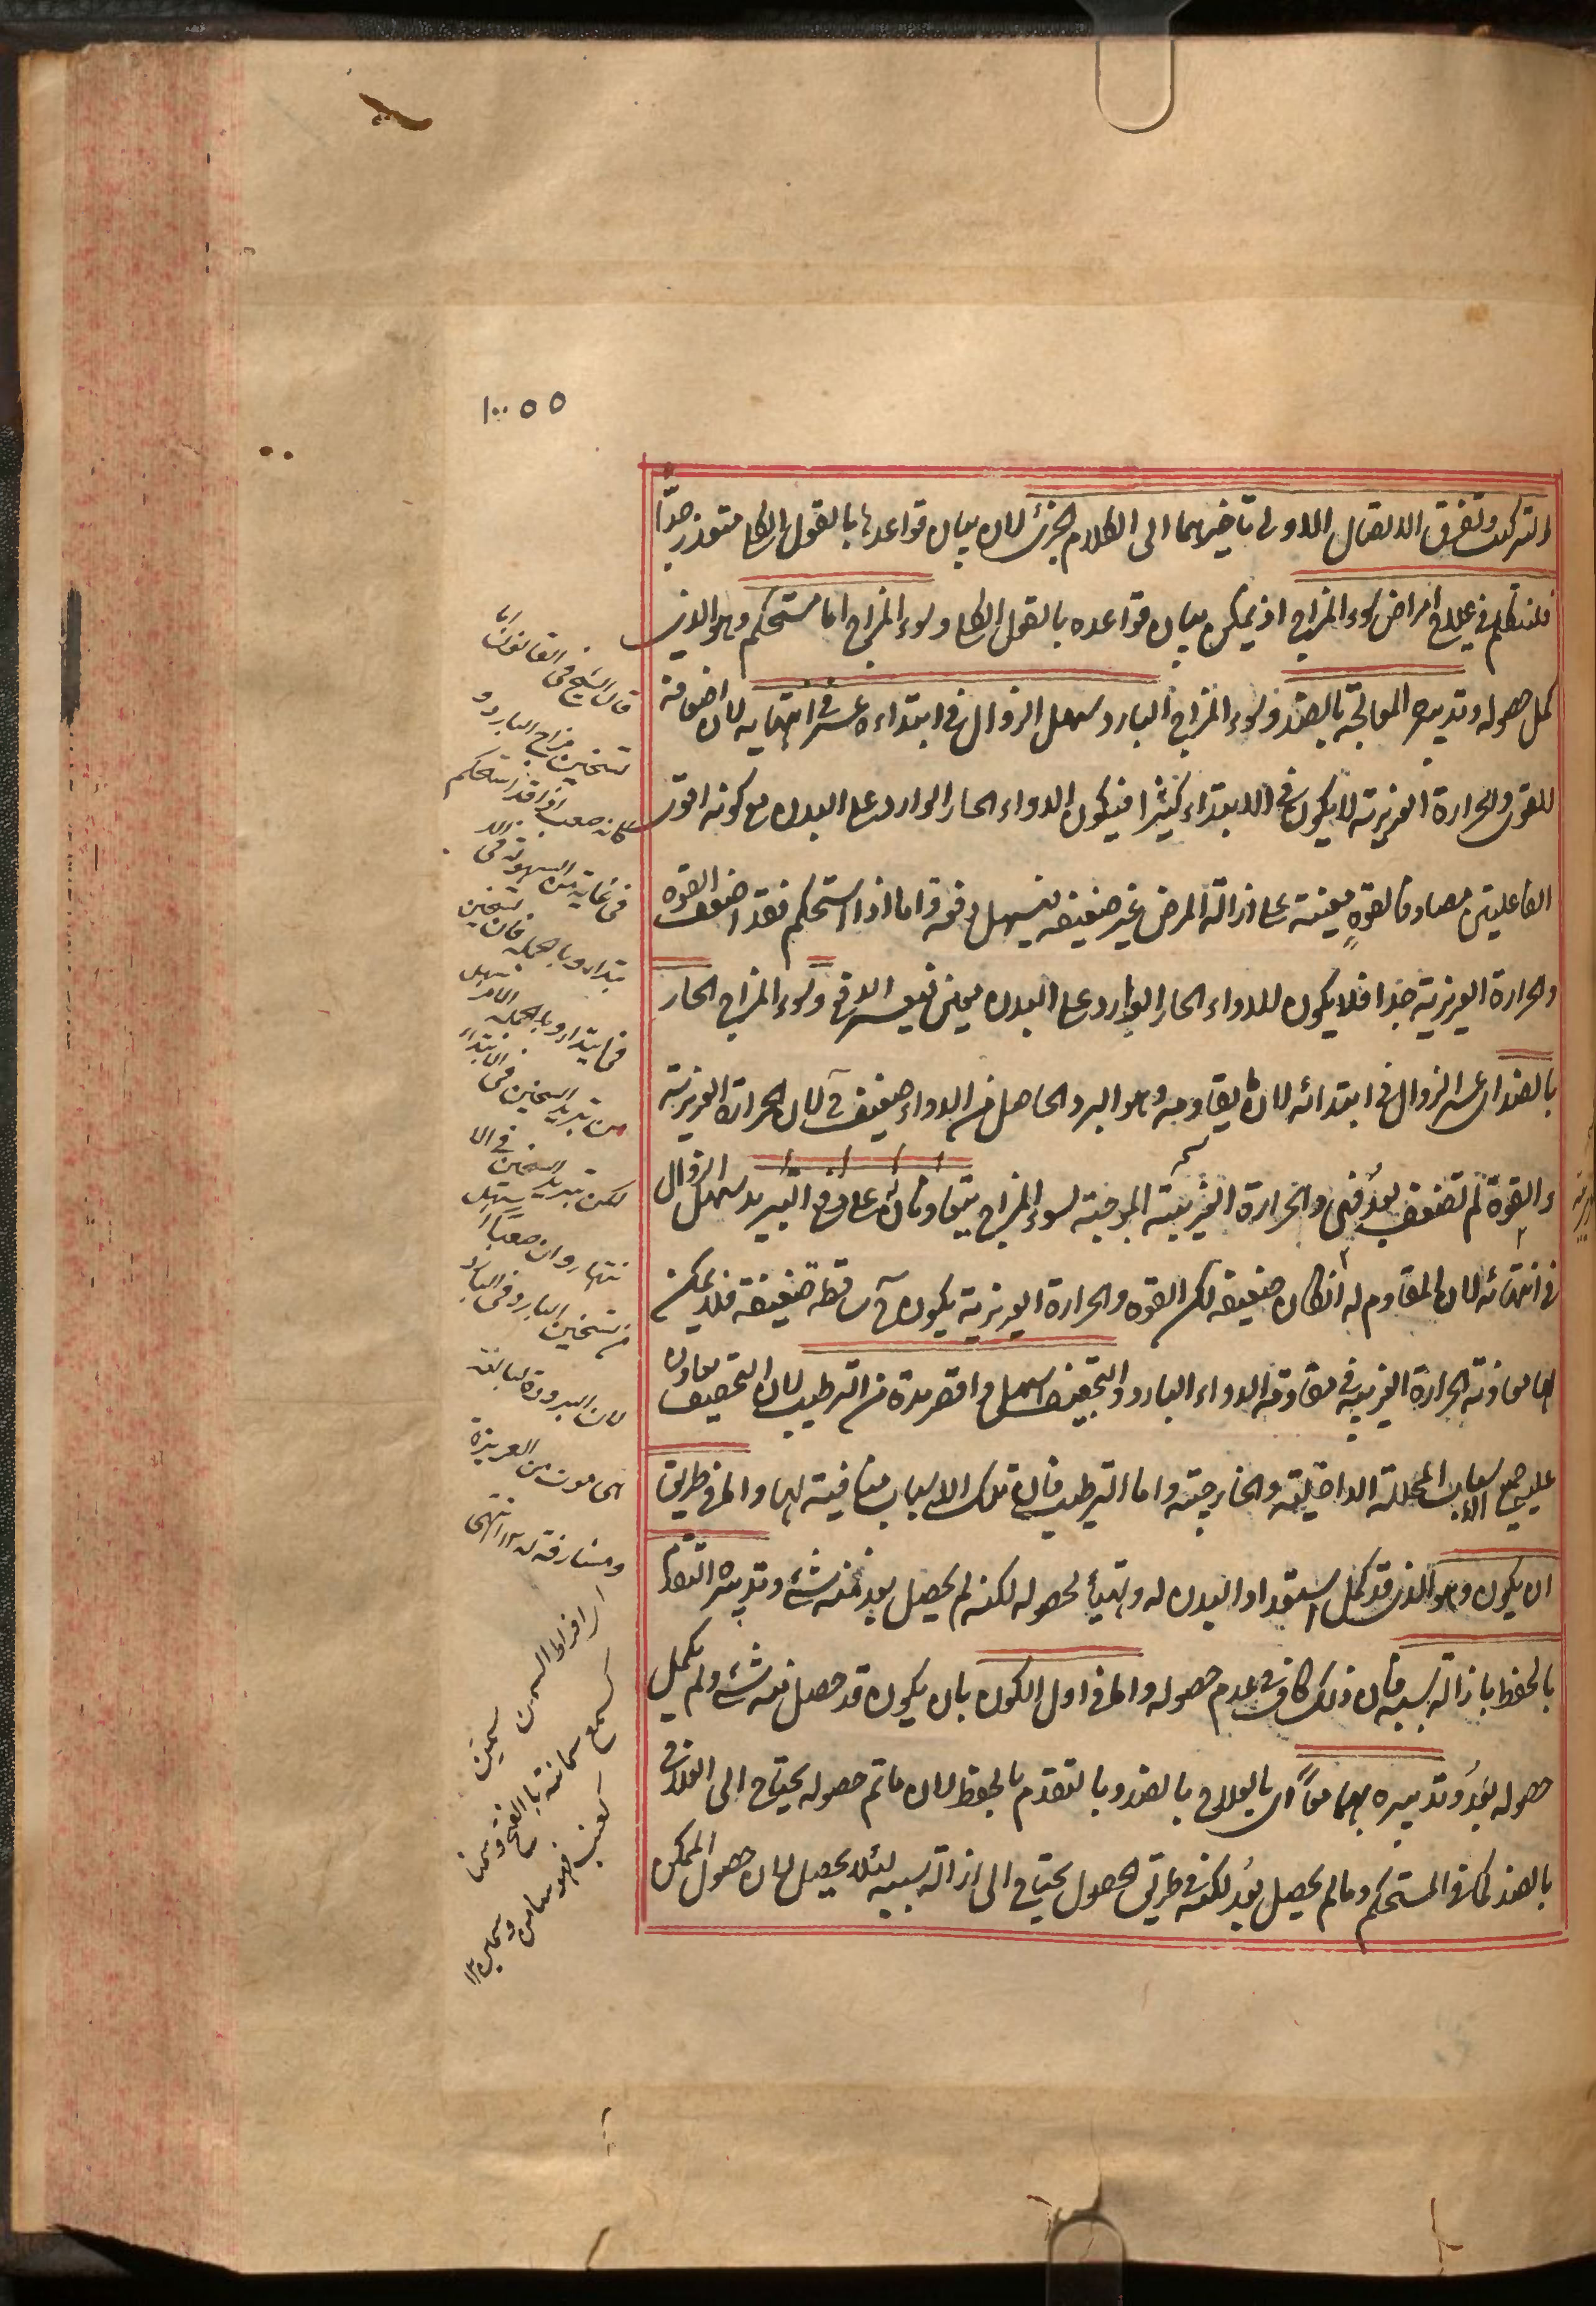 والتركيب وتفرق الاتصال الاولى تاخيرهما الى الكلام الجزئى لان بيان قواعدها بالقول الكلى متعذر جدّا
فلنتكلم فى علاج امراض سوء المزاج اذ يمكن بيان قواعده بالقول الكلى وسوء المزاج اما مستحكم وهو الذى
كمل حصوله وتدبيره المعالجة بالضد وسوء المزاج البارد سهل الزوال فى ابتداءه عسر فى انتهايه لان اضعافه
للقوى والحرارة الغريزية لا يكون فى الابتداء كثيرا فيكون الدواء الحار الوارد على البدن مع كونه اقوى
الفاعليتين مصادفا لقوةٍ معينة على ازالة المرض غير ضعيفه فيسهل دفعه واما اذا استحكم فقد اضعف القوه
والحرارة الغريزية جدا فلا يكون للدواء الحار الوارد على البدن معين فيعسر الدفع وسوء المزاج الحار
بالضد اى عسر الزوال فى ابتدائه لان ما يقاومه وهو البرد الحاصل من الدواء ضعيف ح لان الحرارة الغريزية
والقوة لم تضعف بعد فهى والحرارة الغريبية الموجبة لسوء المزاج يتعاونان على دفع التبريد سهل الزوال
فى انتهائه لان المقاوم له انكان ضعيفه لكن القوه والحرارة الغريزية يكون ح ساقطه ضعيفة فلا يمكن
لها معاونة الحرارة الغريبه فى مقاومة الدواء البارد والتجفيف اسهل واقصر مدة من الترطيب لان التجفيف يعاون
عليه جميع الاسباب المحللة الداخلية والخارجية واما الترطيب فان تلك الاسباب منافية لها واما فى طريق
ان يكون وهو الذى قد كمل استعداد البدن له وتهيأ لحصوله لكنه لم يحصل بعد منه شئ وتدبيره التقدم
بالحفظ بازالة سببه فان ذلك كاف فى عدم حصوله واما فى اول الكون بان يكون قد حصل منه شئ ولم يكمل
حصوله بعد وتدبيره بهما معًا اى بالعلاج بالضد وبالتقدم بالحفظ لان ما تم حصوله يحتاج الى العلاج
بالضد كما فى المستحكم وما لم يحصل بعد لكنه فى طريق الحصول يحتاج الى ازالة سببه لئلا يحصل لان حصول الممكن
قال الشيخ فى القانون
تسخين مزاج البارد
كانه صعب اذا قد استحكم
فى غاية السهولة فى
بتداء وبالجمله فان تسخين
فى ابتداء وبالجمله الامر
من تبريد السخين فى الابتداء
لكن تبريد السخين فى الا
نتهاء وان صعبًا
من تسخين البارد فى
لان البرودة البالغه
هى موت من الغريزة
ومشارفة له ١٢ انتهى